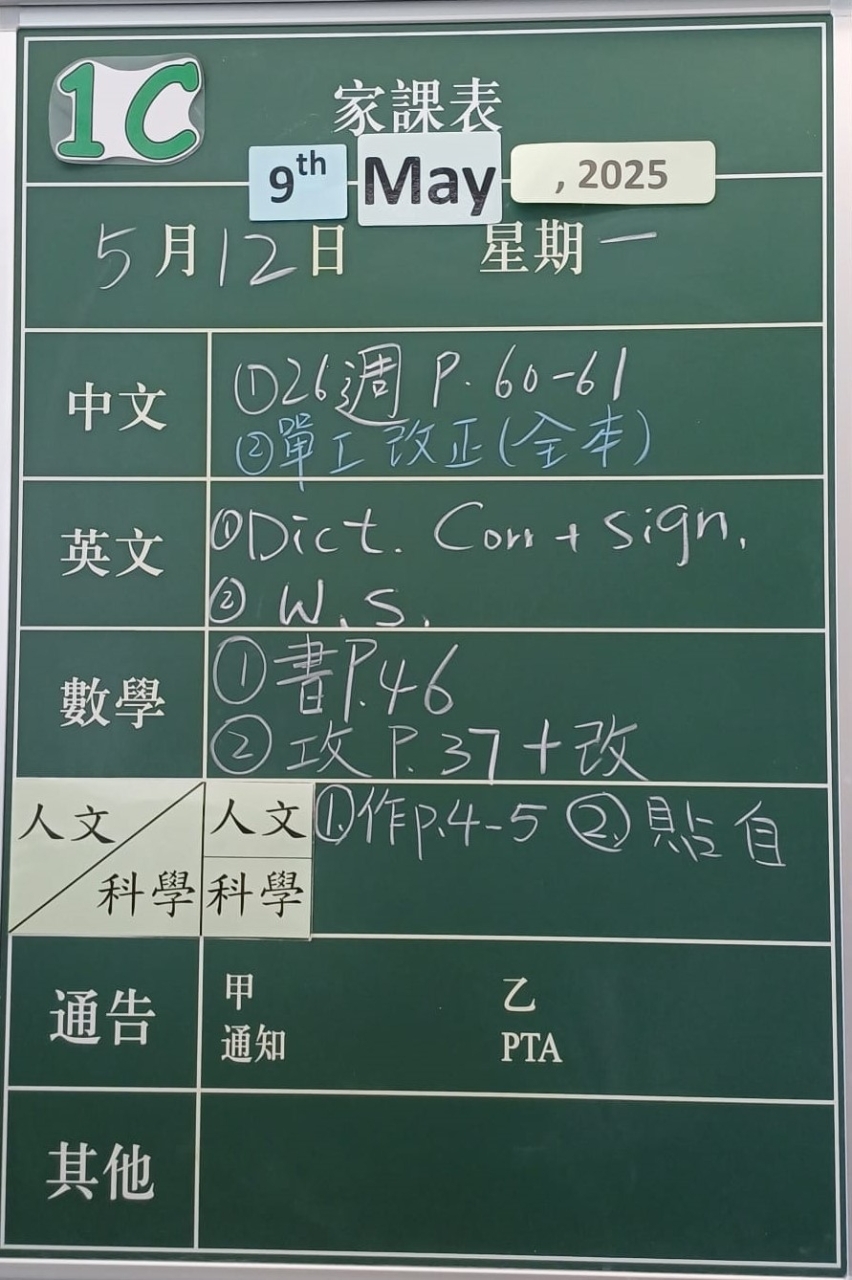 1C
家課表
9th May , 2025
5月12日 星期一
中文
①26週 P. 60-61
②單工改正(全本)
英文
①Dict. Corr + sign.
② W.S.
數學
①書P.46
②攻P.37+改
人文
科學
人文 ①作p.4-5 ②貼自
科學
通告
甲 乙
通知 PTA
其他